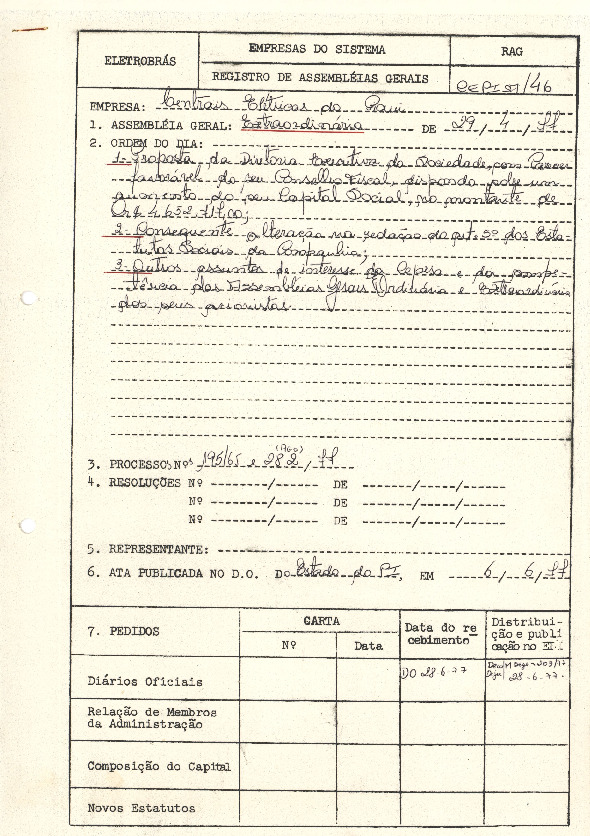 ELETROBRÁS
EMPRESAS DO SISTEMA
RAG
REGISTRO DE ASSEMBLÉIAS GERAIS
CEPISA/46
EMPRESA: Centrais Elétricas do Piauí
1. ASSEMBLÉIA GERAL: Extraordinária DE 29/4/77
2. ORDEM DO DIA:
1- Proposta da Diretoria Executiva da Sociedade, com Parecer
favorável do seu Conselho Fiscal, dispondo sobre um
aumento do seu Capital Social, no montante de
2- Consequente alteração na redação do art. 5º dos Esta-
tutos Sociais da Companhia;
3- Outros assuntos de interesse da Cepisa e da compe-
tência das Assembléias Gerais Ordinária e Extraordinária
dos seus acionistas
3. PROCESSOS Nºs 195/65 e 282 (AGO) /77
4. RESOLUÇÕES Nº ------/------ DE ------/-----/------
Nº ------/------ DE ------/-----/------
Nº ------/------ DE ------/-----/------
5. REPRESENTANTE:
6. ATA PUBLICADA NO D.O. DO Estado do PI, EM 6/6/77
7. PEDIDOS
CARTA
Nº
Data
Data do re
cebimento
Distribui-
ção e publi
cação no
Diários Oficiais
DO 28.6.77
28-6-77-
Relação de Membros
da Administração
Composição do Capital
Novos Estatutos